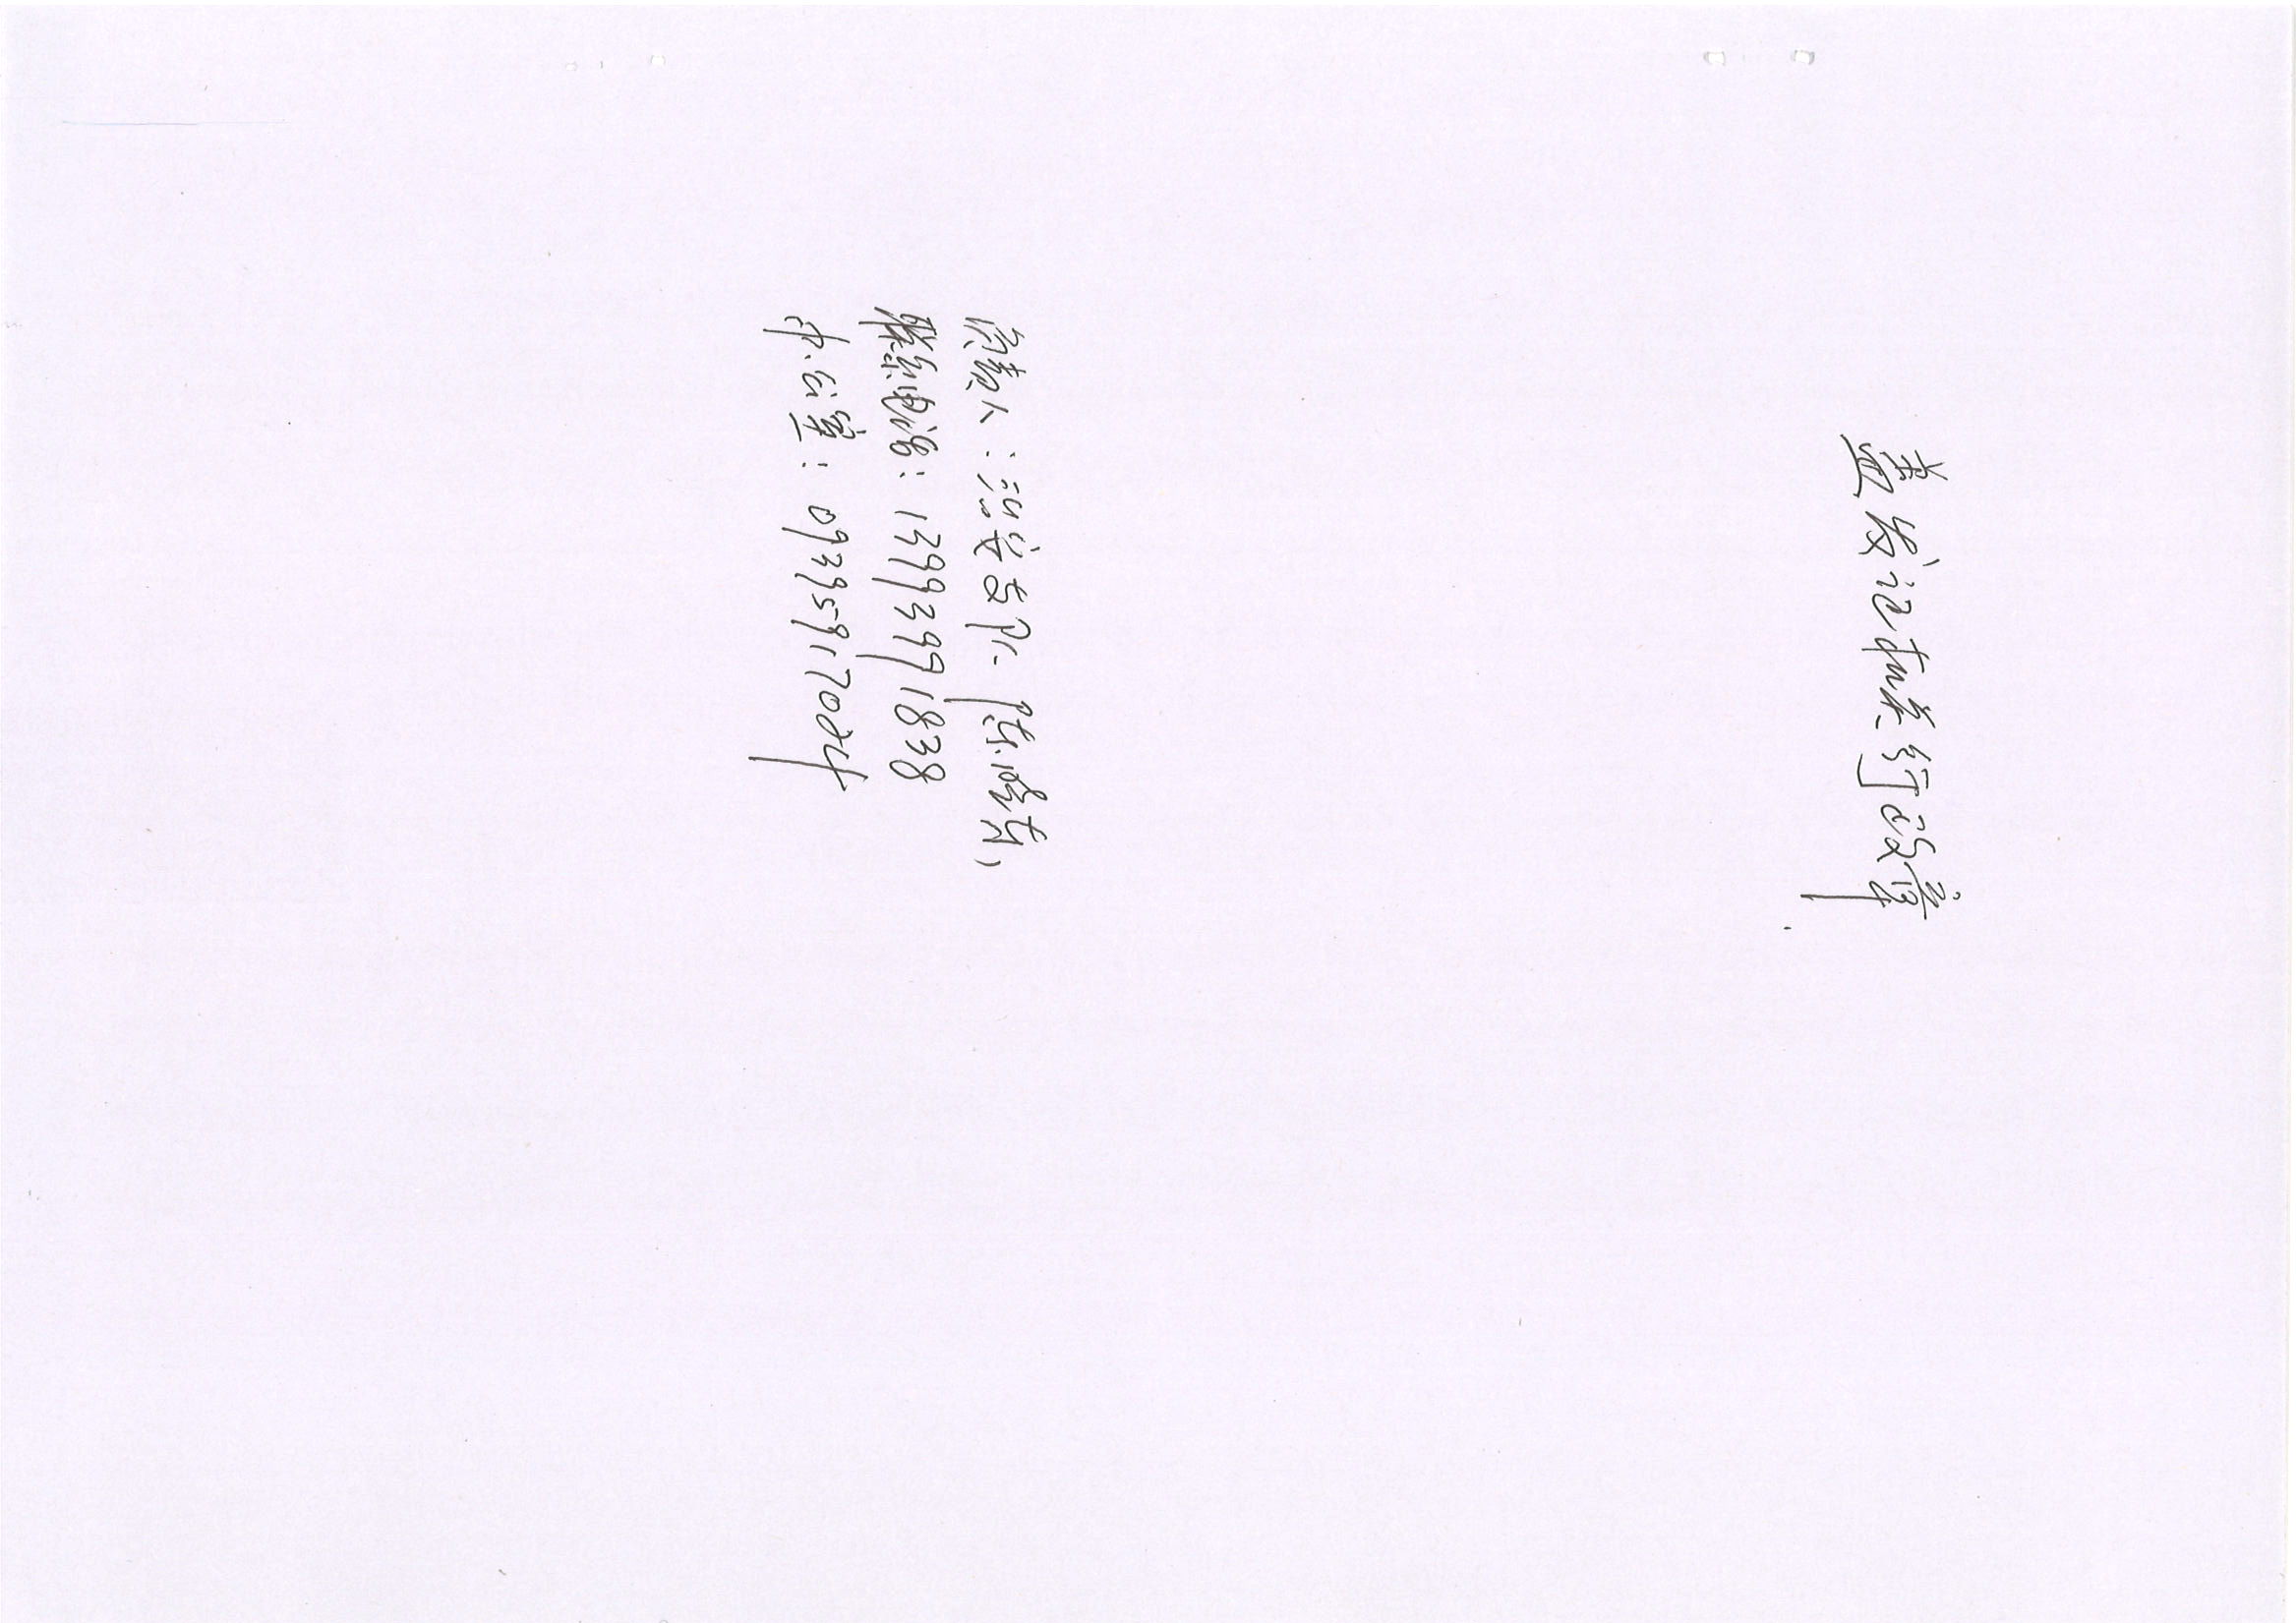 盖发证机关行政章
负责人：治安支队 陈晓东，
联系电话：13993991838
办公室：09395917024